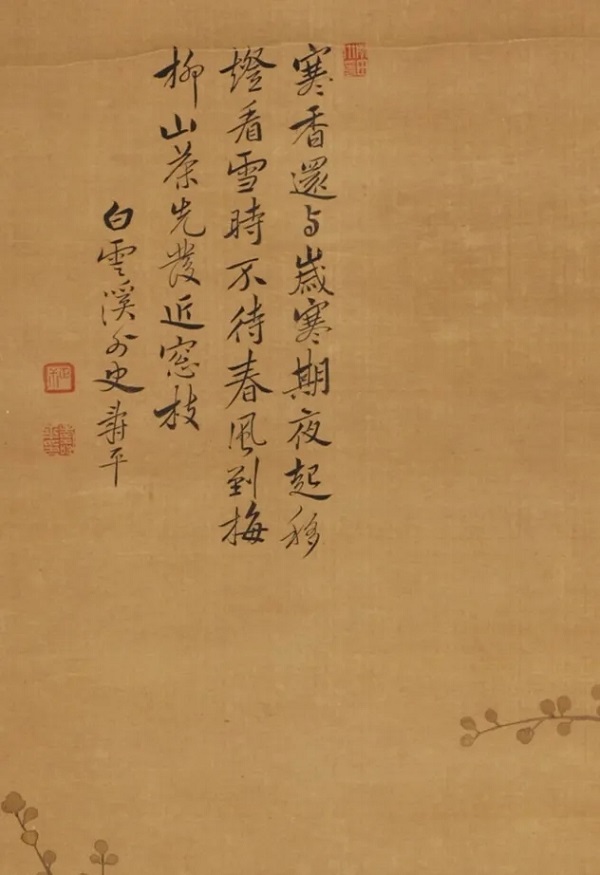 寒香還与歲寒期夜起移
燈看雪時不待春風到梅
柳山茶先發近窓枝
白雲溪外史壽平